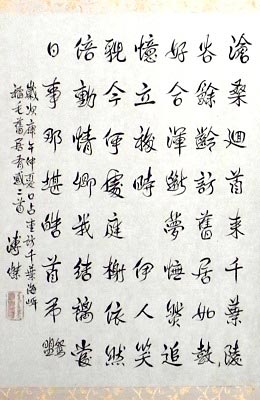 滄桑廻首来千葉陵
谷餘齡訪舊居如鼓
好合渾夢追
憶立移時伊人笑
靚今何處庭榭依然
倍動情卿我結褵當
日事那堪皓首弔鴛盟
歲次庚午仲夏口占重訪千葉海岸
稻毛舊居有感二首 溥傑